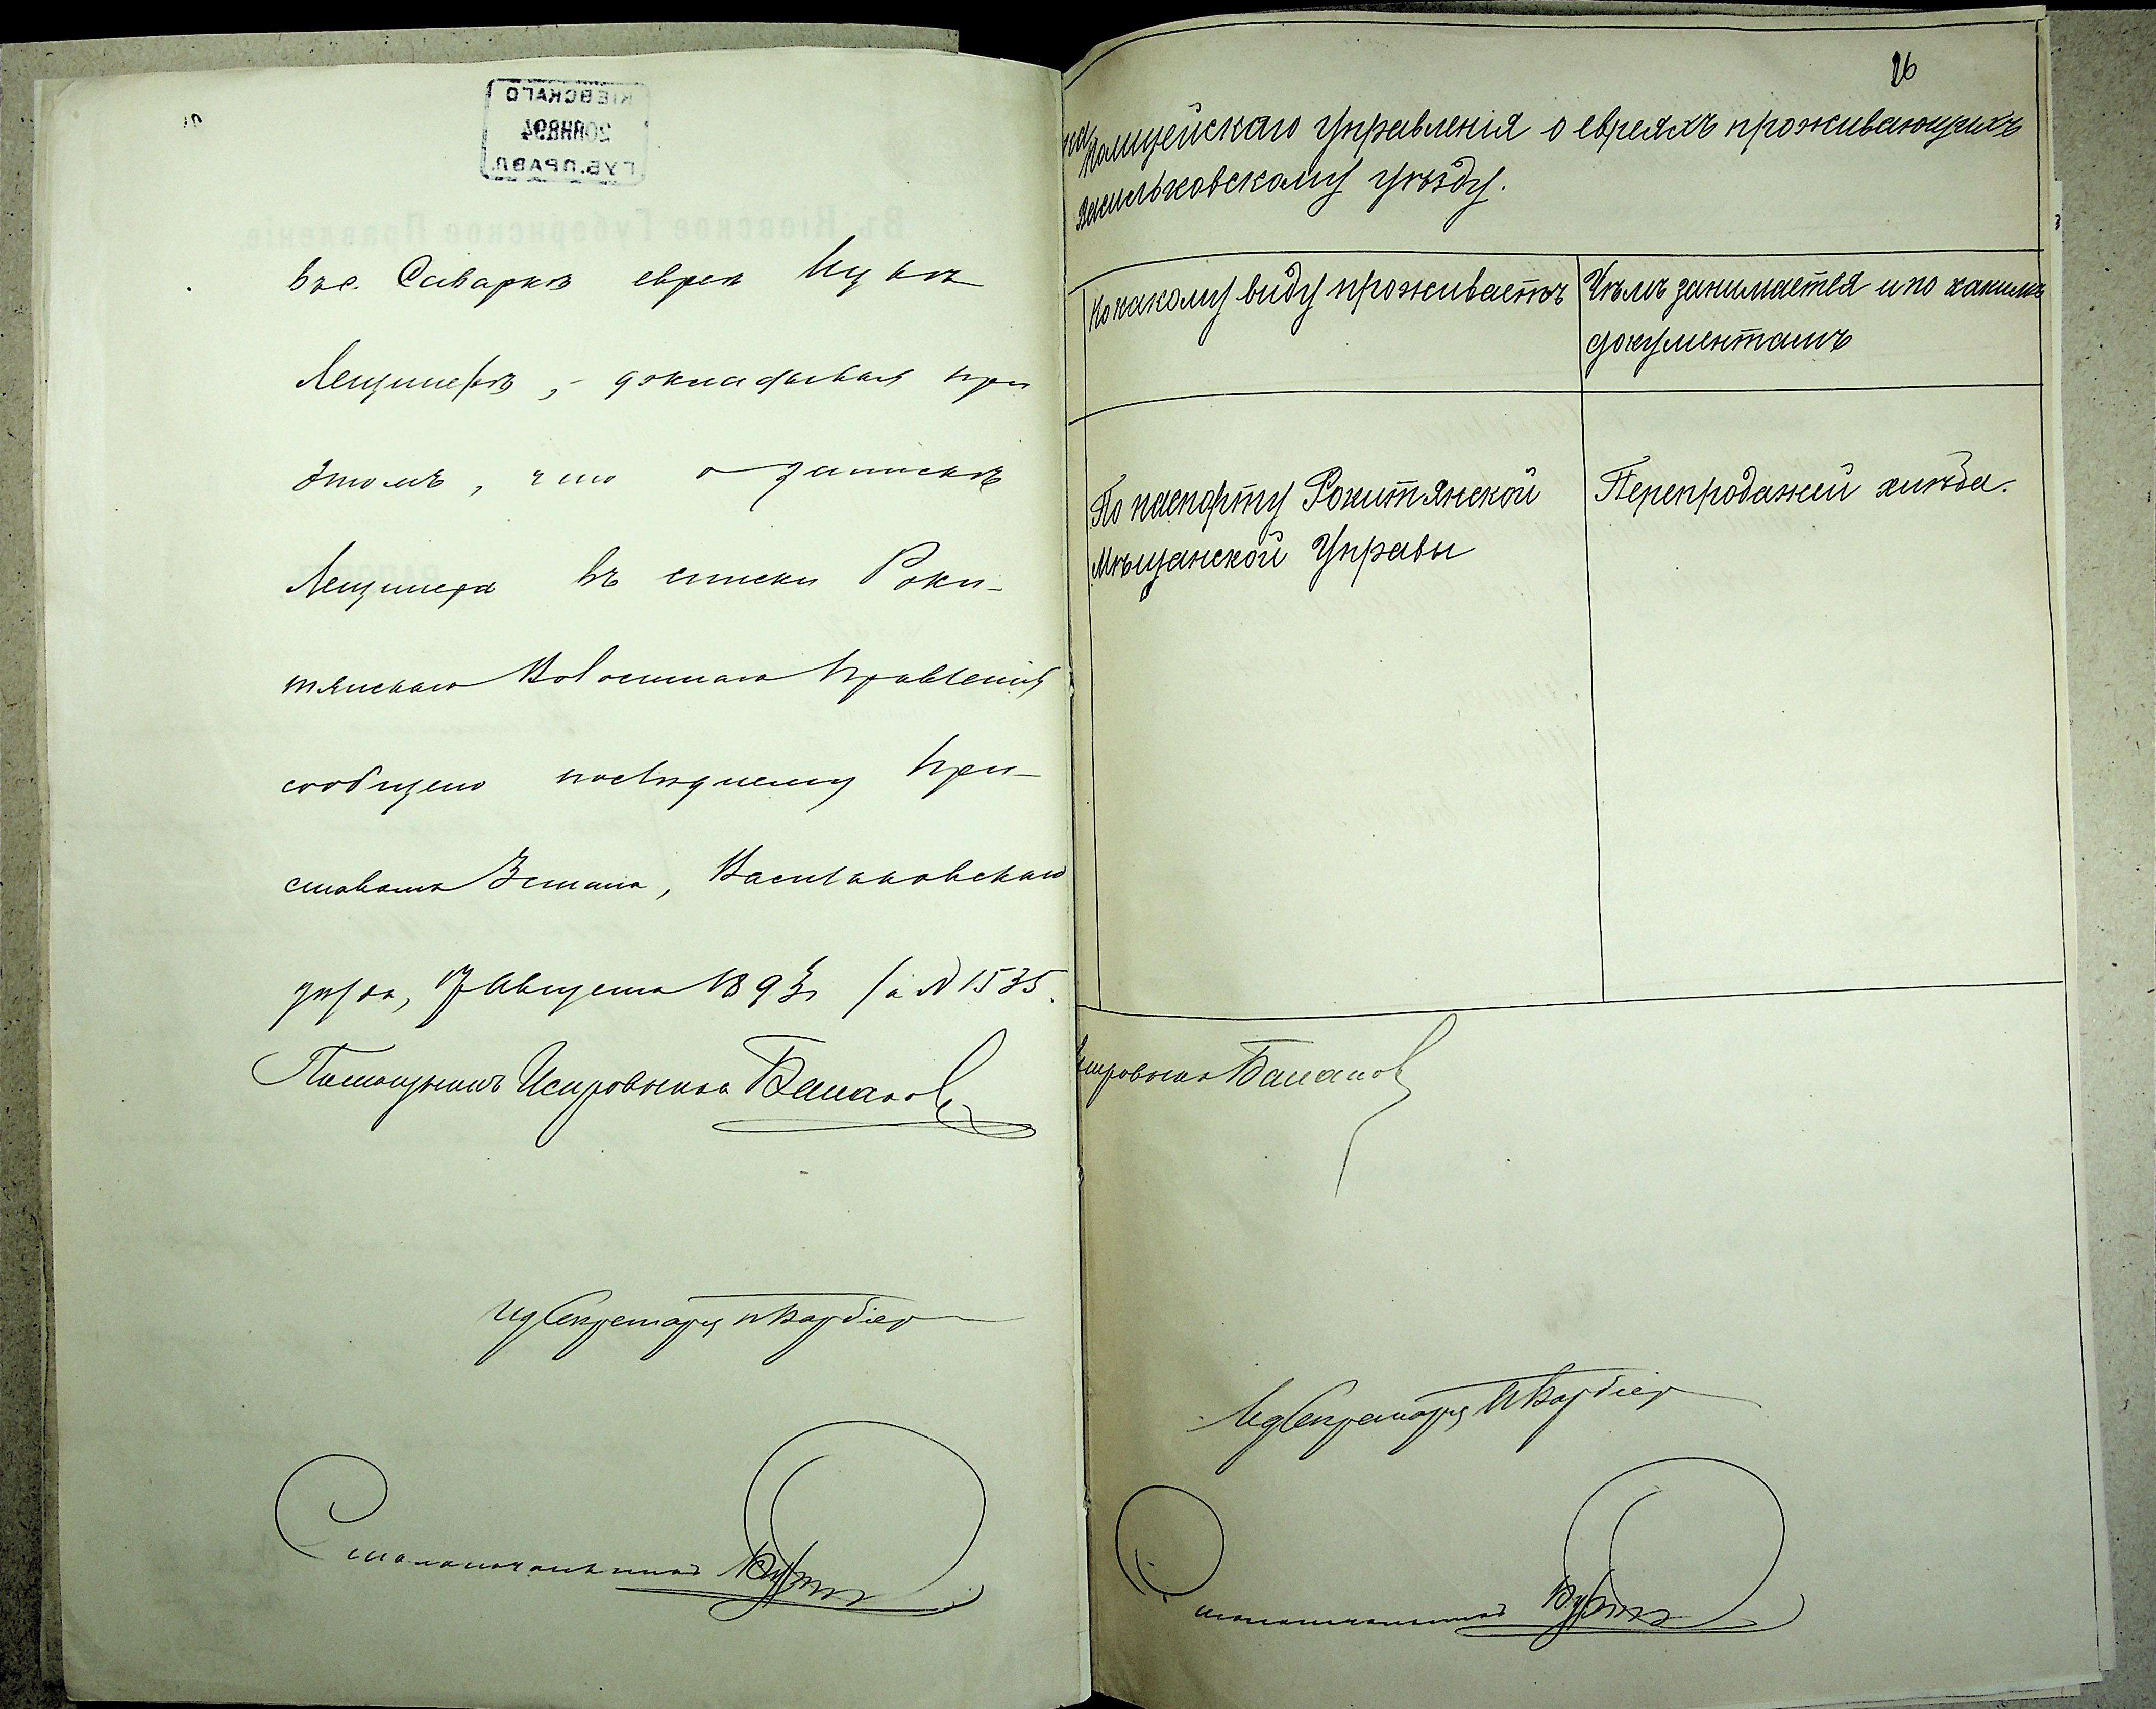 въ с. Саваркѣ еврея Ицька
Лещинера, – докладывая при
этомъ, что о запискѣ
Лещинера въ списки Роки-
тянскаго Волостного Правленія
сообщено последнему При-
ставомъ 3 стана, Васильковскаго
уѣзда, 17 Августа 1893 г. за № 1535.
Помощникъ Исправника
И д Секретаря
Столоначальникъ
26
Полицейскаго Управленія о евреяхъ проживающихъ
Васильковскому уѣзду.
По какому виду проживаетъ
Чѣмъ занимается и по какимъ
документамъ
По паспорту Рокитянской
Мѣщанской Управы
Перепродажей хлѣба.
И д Секретаря
Столоначальникъ